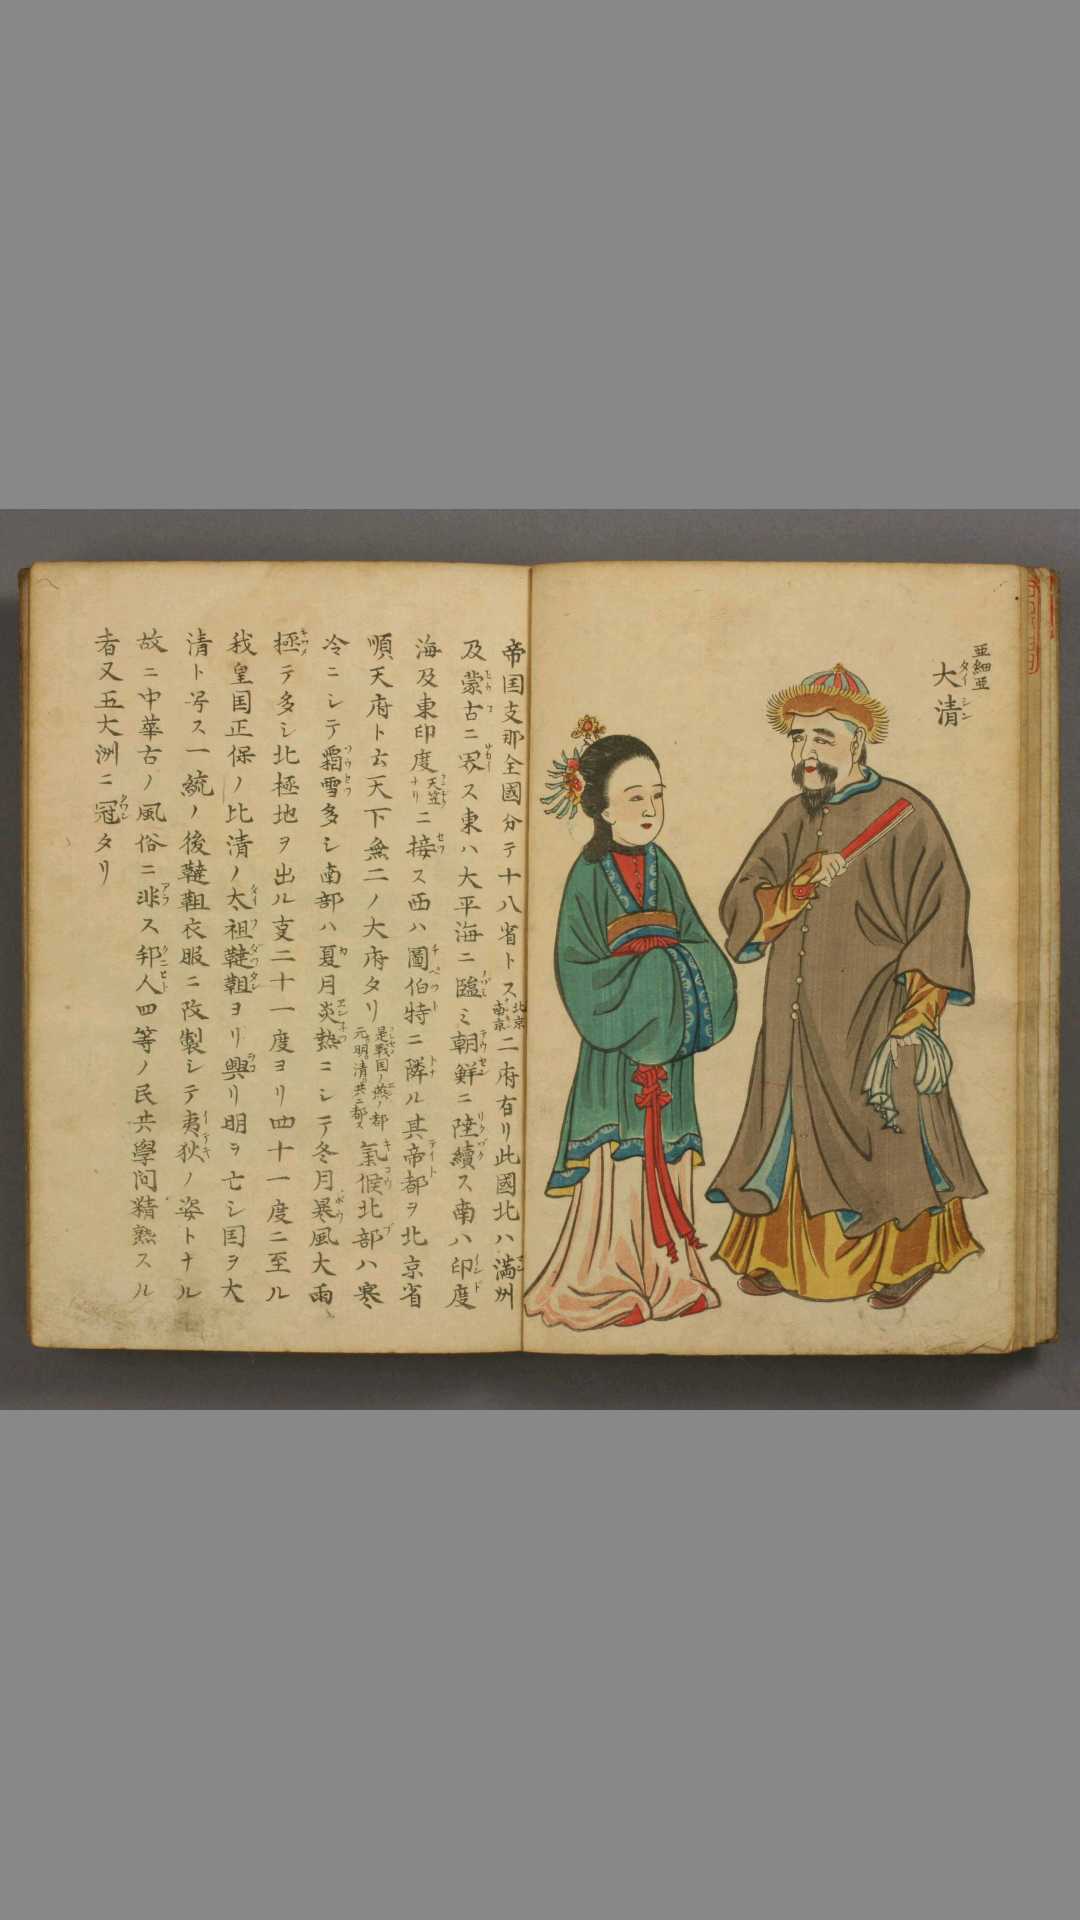 亜細亜
大清
帝国支那全國分テ十八省トス北京南京二府有リ此國北ハ満州
及蒙古ニ界ス東ハ大平海ニ臨ミ朝鮮ニ陸續ス南ハ印度
海及東印度天竺ナリニ接ス西ハ圖伯特ニ隣ル其帝都ヲ北京省
順天府ト云天下無二ノ大府タリ是戦国ノ燕ノ都元明清共ニ都ス氣候北部ハ寒
冷ニシテ霜雪多シ南部ハ夏月炎熱ニシテ冬月暴風大雨
極テ多シ北極地ヲ出ル支二十一度ヨリ四十一度ニ至ル
我皇国正保ノ比清ノ太祖韃靼ヨリ興リ明ヲ亡シ国ヲ大
清ト号ス一統ノ後韃靼衣服ニ改製シテ夷狄ノ姿トナル
故ニ中華古ノ風俗ニ非ス邦人四等ノ民共學問精熟スル
者又五大洲ニ冠タリ